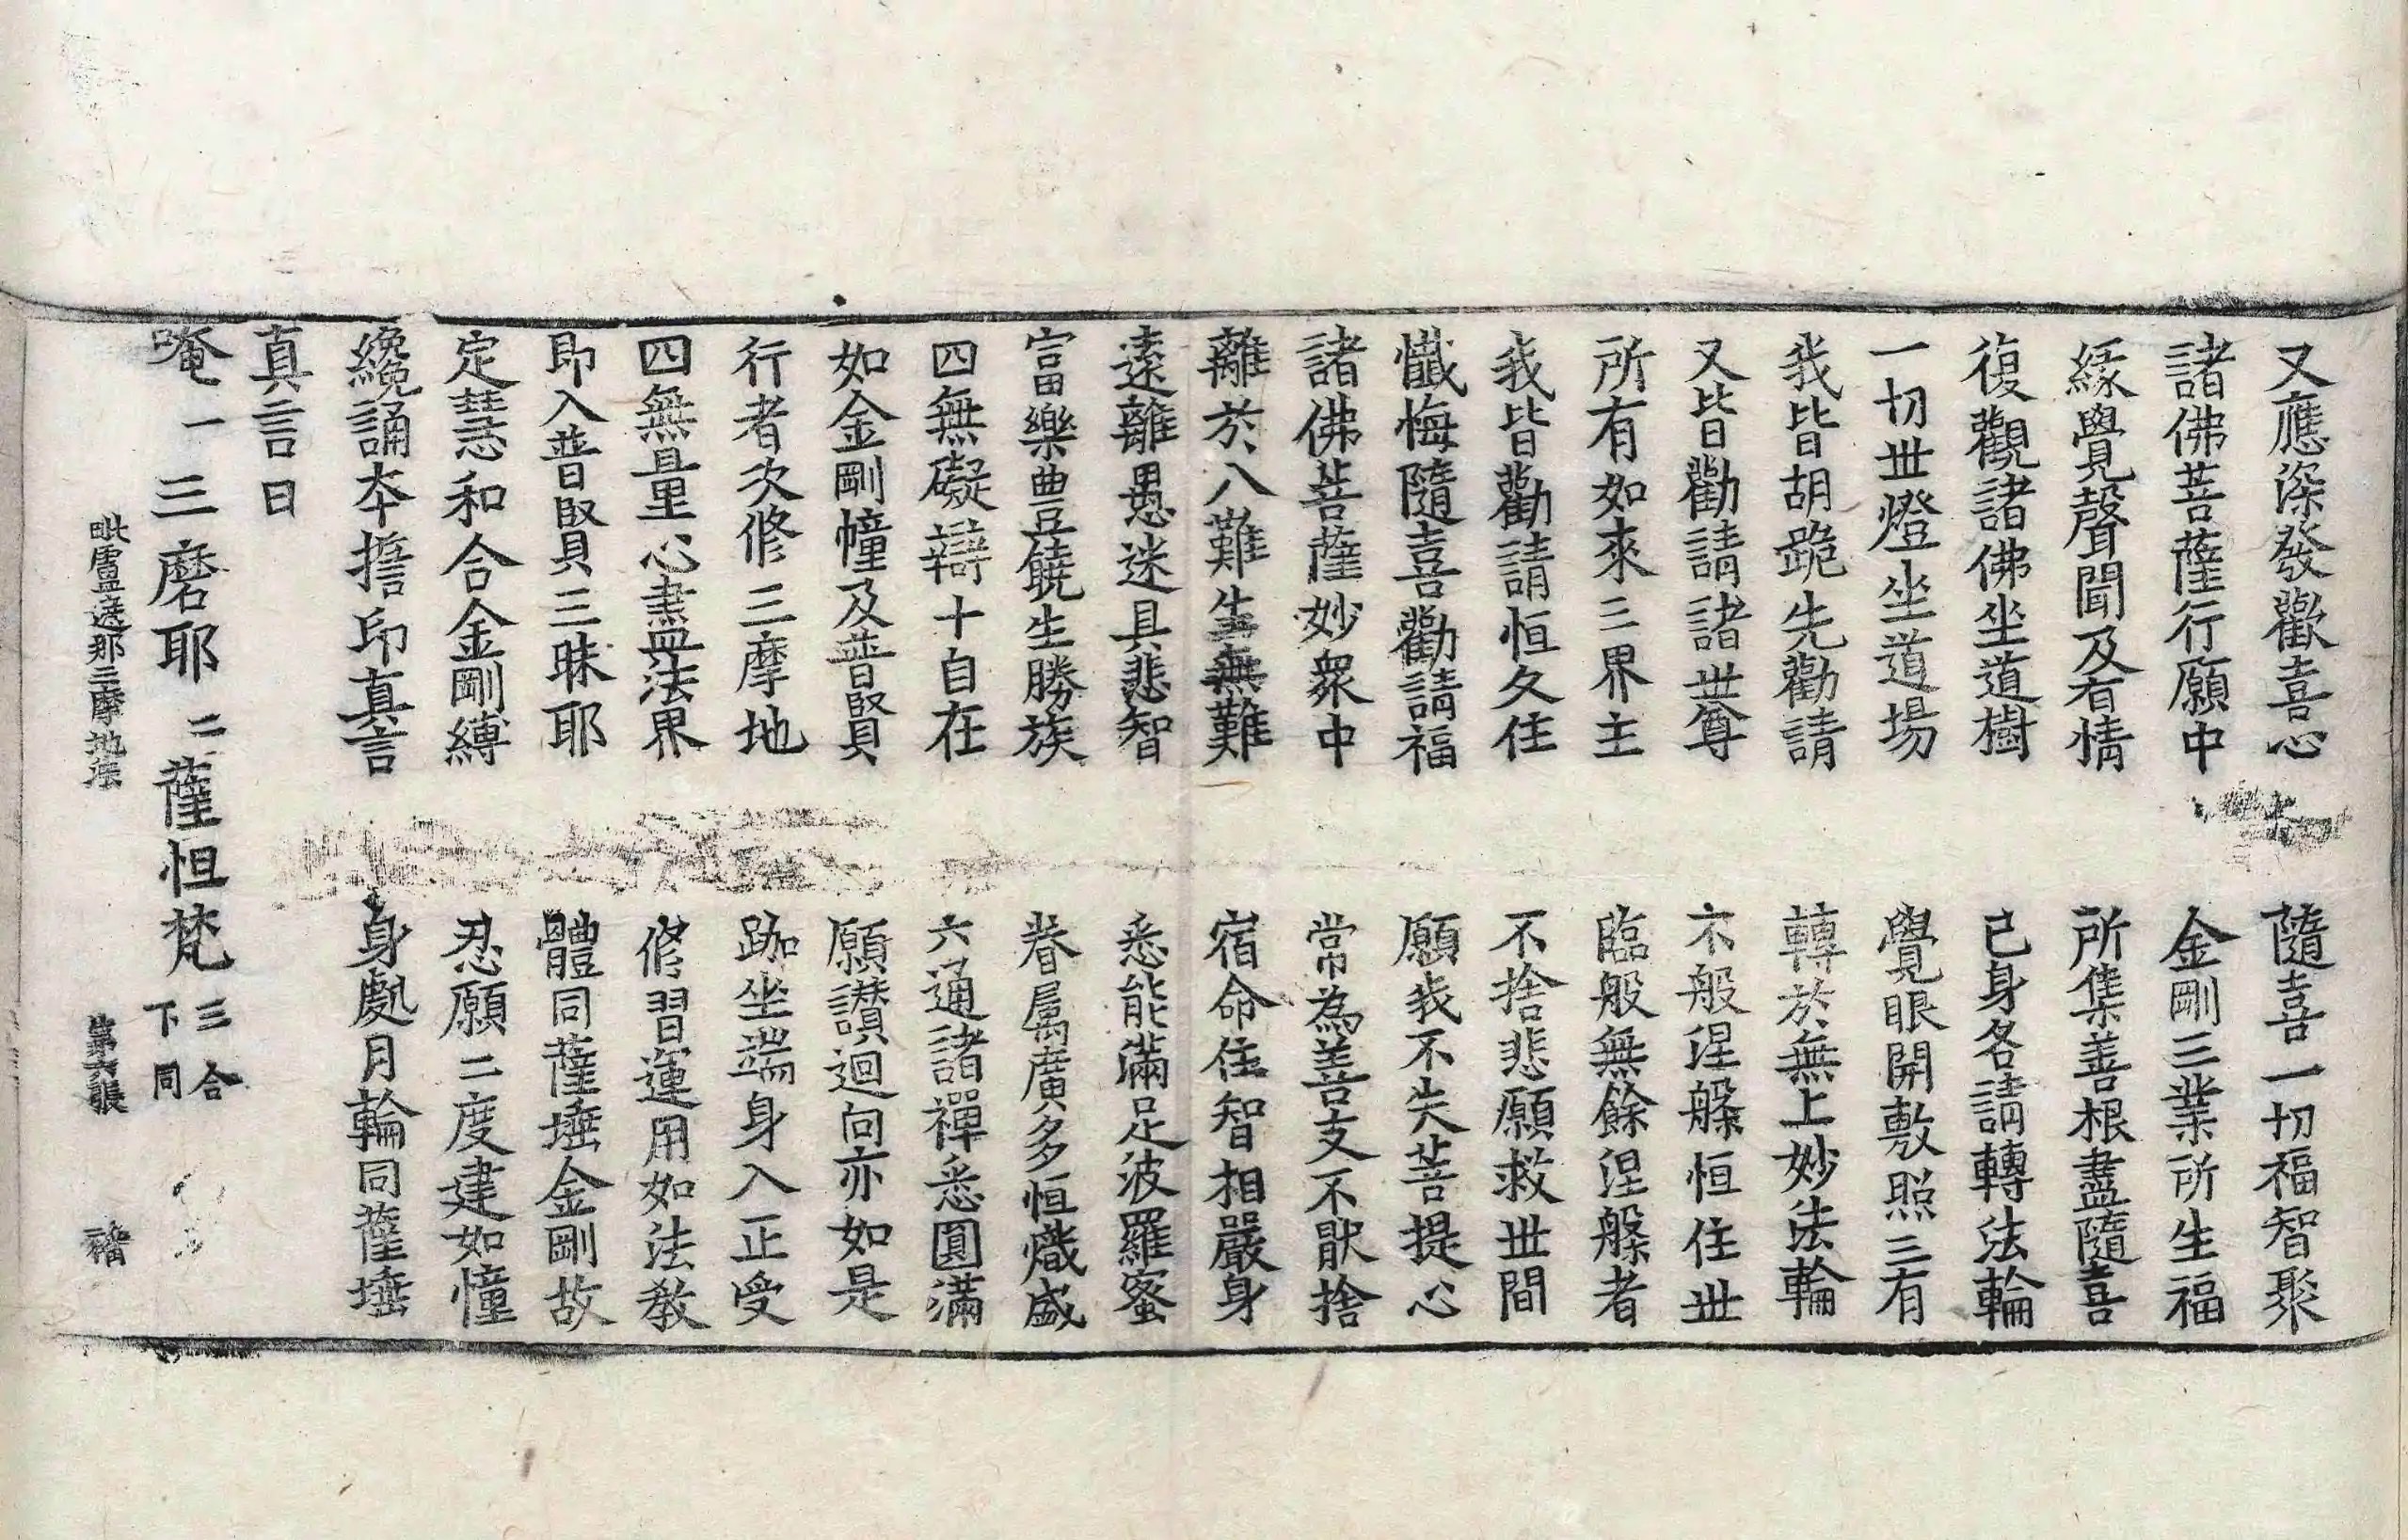 又應深發歡喜心　隨喜一切福智聚
諸佛菩薩行願中　金剛三業所生福
緣覺聲聞及有情　所集善根盡隨喜
復觀諸佛坐道樹　已身各請轉法輪
一切世燈坐道場　覺眼開敷照三有
我皆胡跪先勸請　轉於無上妙法輪
又皆勸請諸世尊　不般涅槃恒住世
所有如來三界主　臨般無餘涅槃者
我皆勸請恒久住　不捨悲願救世間
懺悔隨喜勸請福　願我不失菩提心
諸佛菩薩妙衆中　常為善友不猒捨
離於八難生無難　宿命住智相嚴身
遠離愚迷具悲智　悉能滿足波羅蜜
富樂豐饒生勝族　眷屬廣多恒熾盛
四無礙辯十自在　六通諸禪悉圓滿
如金剛幢及普賢　願讚迴向亦如是
行者次修三摩地　跏坐端身入正受
四無量心盡法界　修習運用如法教
即入普賢三昧耶　體同薩埵金剛故
定慧和合金剛縛　忍願二度建如幢
纔誦本擔印真言　身處月輪同薩埵
真言曰
唵一三磨耶二薩怛梵三合下同
毗盧遮那三摩地法　第六張　楷